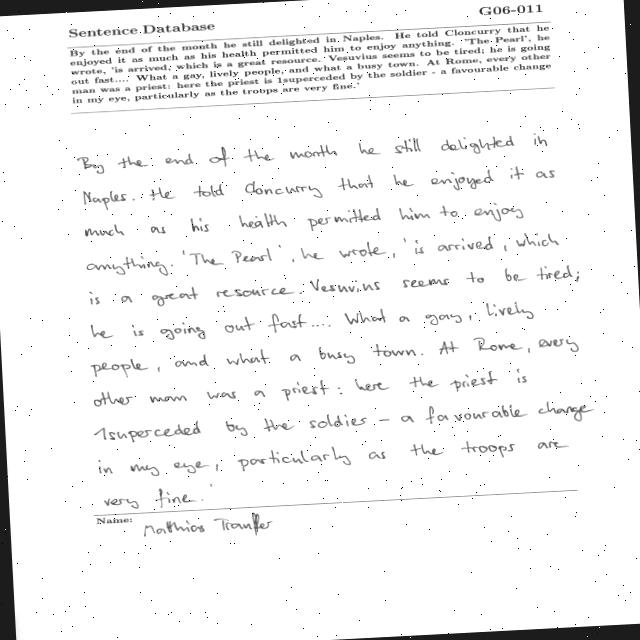 Sentence Database
G06-011
By the end of the month he still delighted in Naples. He told Cloncurry that he
enjoyed it as much as his health permitted him to enjoy anything. 'The Pearl', he
wrote, 'is arrived, which is a great resource. Vesuvius seems to be tired; he is going
out fast.... What a gay, lively people, and what a busy town. At Rome, every other
man was a priest: here the priest is 1superceded by the soldier - a favourable change
in my eye, particularly as the troops are very fine.'
By the end of the month he still delighted in
Naples. He told Cloncurry that he enjoyed it as
much as his health permitted him to enjoy
anything. 'The Pearl', he wrote, 'is arrived, which
is a great resource. Vesuvius seems to be tired;
he is going out fast.... What a gay, lively
people, and what a busy town. At Rome, every
other man was a priest: here the priest is
1superceded by the soldier - a favourable change
in my eye, particularly as the troops are
very fine.'
Name:
Mathias